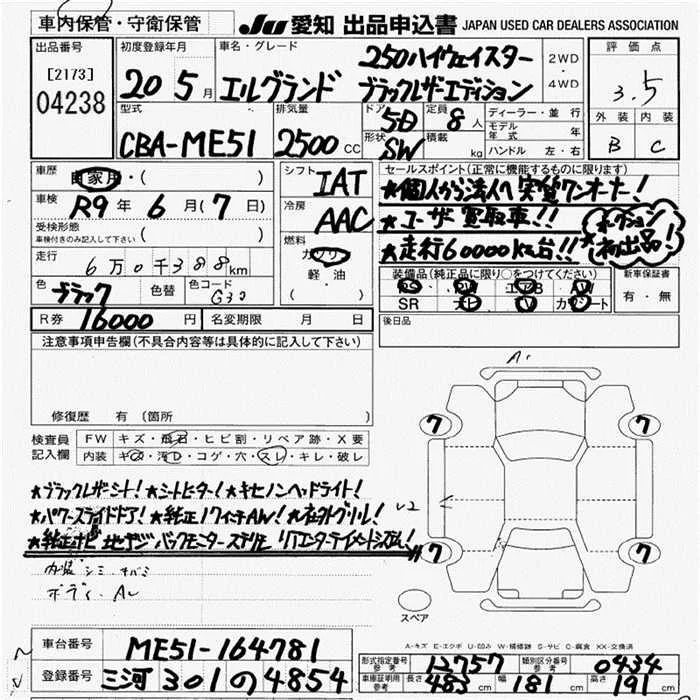 車内保管・守衛保管
JU 愛知 出品申込書 JAPAN USED CAR DEALERS ASSOCIATION
出品番号
[2173]
04238
初度登録年月
20 5 月
車名・グレード
エルグランド
250ハイウェイスター
ブラックレザーエディション
2WD
・
4WD
評価点
3.5
外装 内装
B C
型式
CBA-ME51
排気量
2500 CC
ドア 5D
形状 SW
定員 8 人
積載 kg
ディーラー・並行
モデル年式 年
ハンドル 左・右
車歴
自家用・( )
車検
R9 年 6 月 (7 日)
受検形態
車検付きのみ記入して下さい ( )
走行
6万0千388km
色 ブラック 色替 色コード G30
シフト IAT
冷房 AAC
燃料
ガソリン
軽・油
( )
セールスポイント(正常に機能するものに限ります)
★個人から法人へ実質ワンオーナー!
★ユーザー買取車!!
★走行60000km台!!
★オークション初出品!
装備品(純正品に限り○をつけてください)
PS PW エアB AW
SR ナビ TV カワシート
新車保証書
有・無
R券 16000 円 名変期限 月 日
後日品
注意事項申告欄(不具合内容等は具体的に記入して下さい)
修復歴 有 (箇所 )
検査員記入欄
FW キズ・飛石・ヒビ割・リペア跡・X要
内装 キズ・汚レ・コゲ・穴・スレ・キレ・破レ
★ブラックレザーシート!★シートヒーター!★キセノンヘッドライト!
★パワースライドドア!★純正17インチAW!★社外グリル!
★純正ナビ 地デジ バックモニター ステリモ リアエンターテイメントシステム!
内装 シミ キバミ
ボディ A
A
U2
7
7
7
7
スペア
A-キズ E-エクボ U-凹み W-補修跡 S-サビ C-腐食 XX-交換済
車台番号 ME51-164781
登録番号 三河 301 の 4854
形式指定番号 参考 12757 類別区分番号 参考 0434
車庫証明用 参考 長さ 483 cm 幅 181 cm 高さ 191 cm